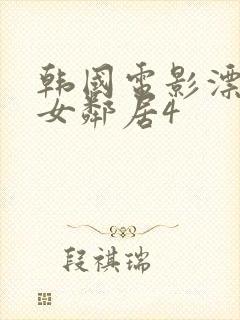 韩国电影漂
女鄰居4
段祺瑞